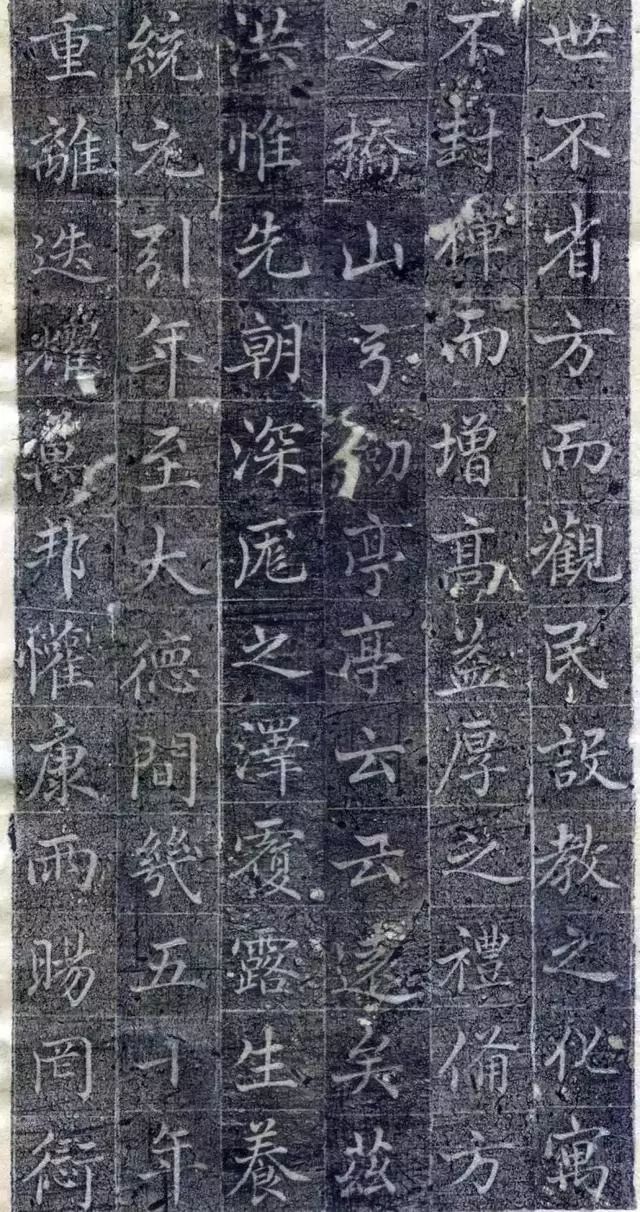 世不省方而觀民設教之化寓
不封禪而增高益厚之禮俻方
之橋山弓劒亭亭云云遠矣茲
洪惟先朝深厖之澤覆露生養
統元引年至大德間幾五十年
重離迭耀萬邦懽康雨暘罔愆